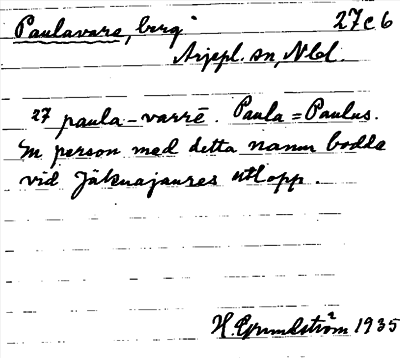 Paulavare, berg 27c6
Arjepl. sn, Nbl.
27 paula-varrē. Paula = Paulus.
En person med detta namn bodde
vid Jäknajaures utlopp.
H. Grundström 1935